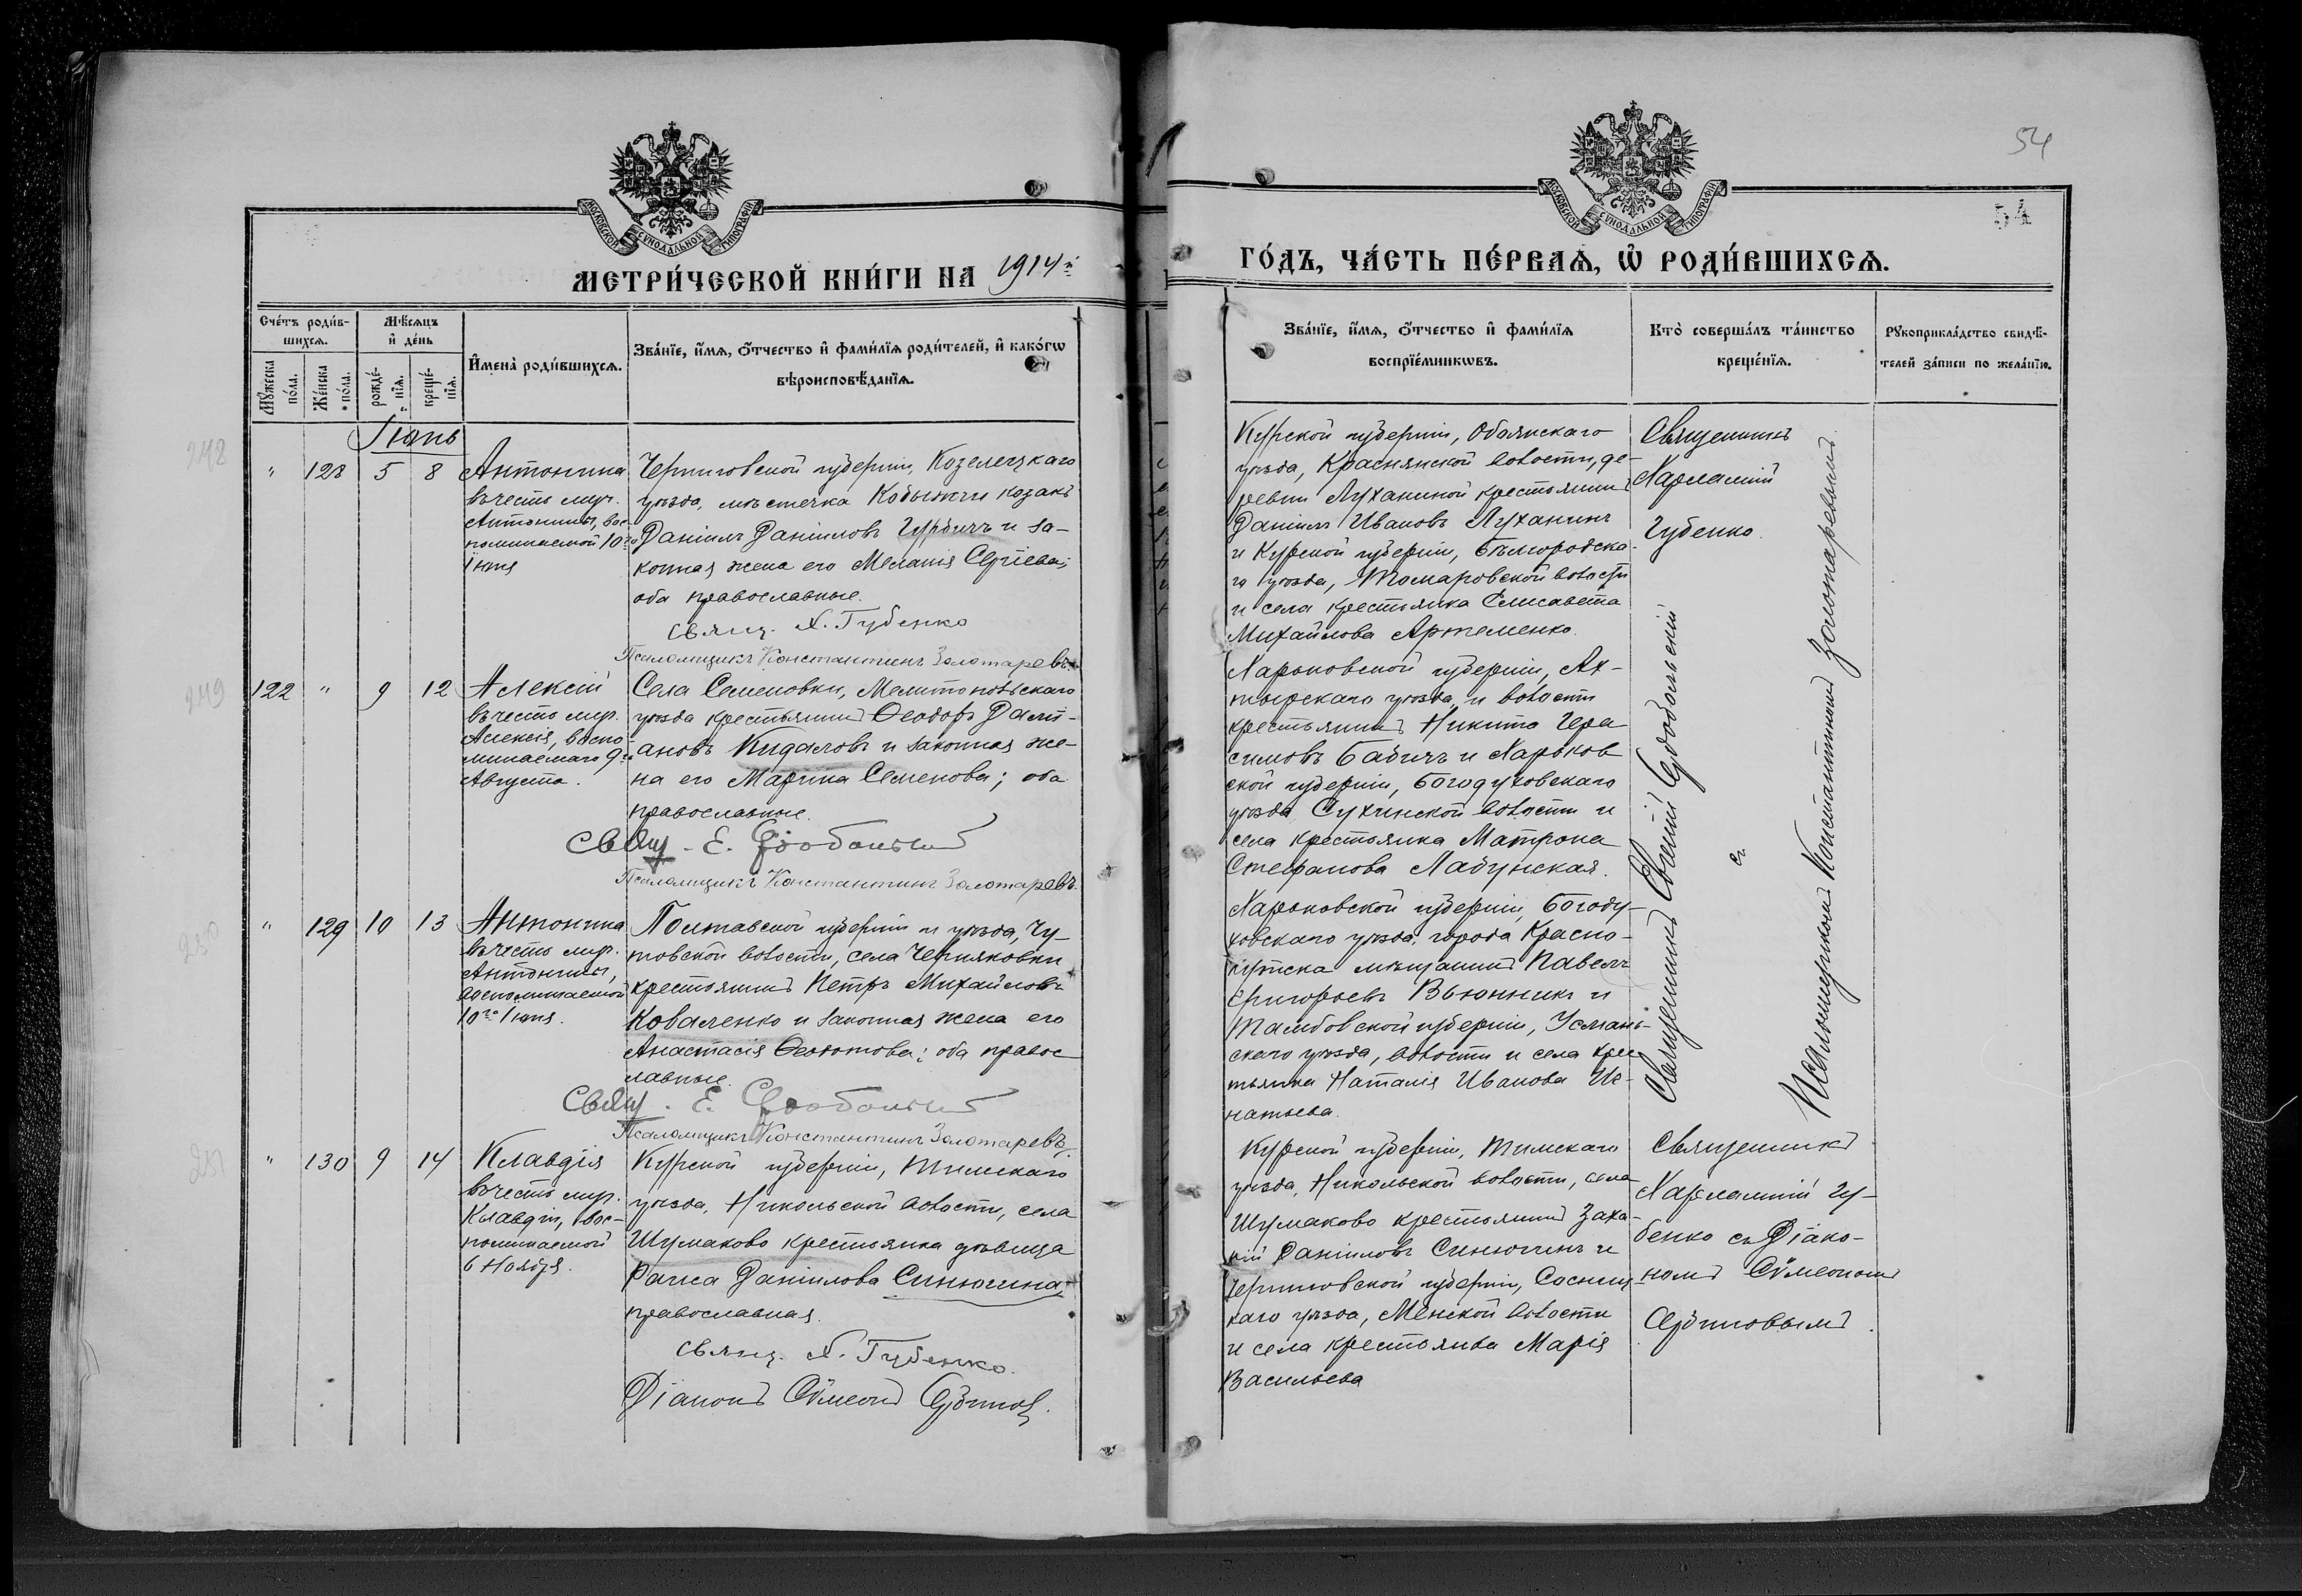 54
54
МОСКОВСКОЙ СѴНОДАЛЬНОЙ ТИПОГРАФІИ
МЕТРИ́ЧЕСКОЙ КНИ́ГИ НА 1914й
Сче́тъ роди́в-
шихсѧ.
Мѣ́сѧцъ
и҆ де́нь
Мꙋ́жеска
по́ла.
Же́нска
по́ла.
рожде́-
нїѧ.
креще́-
нїѧ.
И҆мена̀ роди́вшихсѧ.
Зва́нїе, и҆́мѧ, ѻ҆́тчество и҆ фами́лїѧ роди́телей, и҆ како́гѡ
вѣроисповѣ́данїѧ.
Іюнь
248
" 128 5 8
Антонина
въ честь муч.
Антонины, вос-
поминаемой 10го
Іюня
Черниговской губерніи, Козелецкаго
уѣзда, мѣстечка Кобыжчи козакъ
Даніилъ Даніиловъ Гурбичъ и за-
конная жена его Меланія Сергіева;
оба православные.
Свящ. Х. Губенко
Псаломщикъ Константинъ Золотаревъ
249
122 " 9 12
Алексій
въ честь муч.
Алексія, воспо-
минаемаго 9го
Августа.
Села Семеновки, Мелитопольскаго
уѣзда крестьянинъ Ѳеодоръ Даміа-
новъ Кидаловъ и законная же-
на его Марина Семенова; оба
православные.
Свящ. Е.
Псаломщикъ Константинъ Золотаревъ.
250
" 129 10 13
Антонина
въ честь муч.
Антонины,
воспоминаемой
10го Іюня.
Полтавской губерніи и уѣзда, Чу-
товской волости, села Черняковки
крестьянинъ Петръ Михайловъ
Коваленко и законная жена его
Анастасія Ѳеодотова; оба правос
лавные.
Свящ. Е.
Псаломщикъ Константинъ Золотаревъ.
251
" 130 9 14
Клавдія
въ честь муч.
Клавдіи, вос-
поминаемой
6 Ноября.
Курской губерніи, Тимскаго
уѣзда, Никольской волости, села
Шумаково крестьянка дѣвица
Раиса Даніилова Синюгина,
православная.
Свящ. Х. Губенко.
Діаконъ Сѵмеонъ
МОСКОВСКОЙ СѴНОДАЛЬНОЙ ТИПОГРАФІИ
ГО́ДЪ, ЧА́СТЬ ПЕ́РВАѦ, Ѡ҆ РОДИ́ВШИХСѦ.
Зва́нїе, и҆́мѧ, ѻ҆́тчество и҆ фами́лїѧ
воспрїе́мникѡвъ.
Кто̀ соверша́лъ та́инство
креще́нїѧ.
Рꙋкоприкла́дство свидѣ́-
телей за́писи по жела́нїю.
Курской губерніи, Обоянскаго
уѣзда, Краснянской волости, де-
ревни Луханиной крестьянинъ
Даніилъ Ивановъ Луханинъ
и Курской губерніи, Бѣлгородска-
го уѣзда, Томаровской волости
и села крестьянка Елисавета
Михайлова Артеменко.
Священникъ
Харлампій
Губенко.
Харьковской губерніи, Ах-
тырскаго уѣзда и волости
крестьянинъ Никита Гера
симовъ Бабичъ и Харьков
ской губерніи, Богодуховскаго
уѣзда села крестьянка Матрона
Стефанова Лабунская.
Харьковской губерніи, Богоду-
ховскаго уѣзда, города Красно-
кутска мѣщанинъ Павелъ
Григорьевъ Вьюнникъ и
Тамбовской губерніи, Усмань-
скаго уѣзда, волости и села крес
тьянка Наталія Иванова Иг-
натьева.
Священникъ Евгеній
съ
Псаломщикомъ Константиномъ Золотаревымъ.
Курской губерніи, Тимскаго
уѣзда, Никольской волости, села
Шумаково крестьянинъ Заха-
рій Даніиловъ Синюгинъ и
Черниговской губерніи, Сосниц-
каго уѣзда, Менской волости
и села крестьянка Марія
Васильева
Священникъ
Харлампій Гу-
бенко съ Діако-
номъ Сѵмеономъ